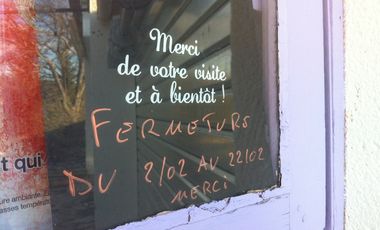 Merci
de votre visite
et à bientôt !
FERMETURE
DU 2/02 AU 22/02
MERCI
t qui
ure ambiante.
asses températ